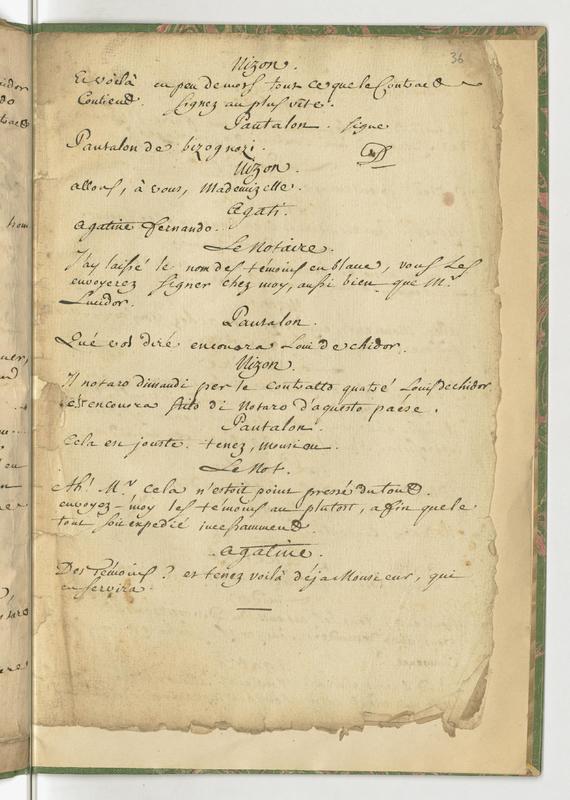 36
Nizon.
Et voilà en peu de mots tout ce que le Contract
Contient. Signez au plus vîte.
Pantalon. signe
Pantalon de bizognozi.
Nizon.
allons, à vous, Mademizelle.
Agati.
Agatine fernando.
Le Notaire.
J'ay laissé le nom des témoins en blanc, vous les
envoyerez signer chez moy, aussi bien que Mr.
Lucidor.
Pantalon.
Qué vol diré encouora Loui de chidor.
Nizon.
Il notaro dimandi per le contratto quatré Louis de chidor
è st encouora stilo di Notaro d'aquesto païse.
Pantalon.
Cela est jouste. tenez, Monsiou.
Le Not.
Ah! Mr. cela n'estoit point pressé du tout.
envoyez-moy les témoins au plutost, afin que le
tout soit expedié incessamment.
Agatine.
Des témoins? et tenez voilà déja Monsieur, qui
en servira.